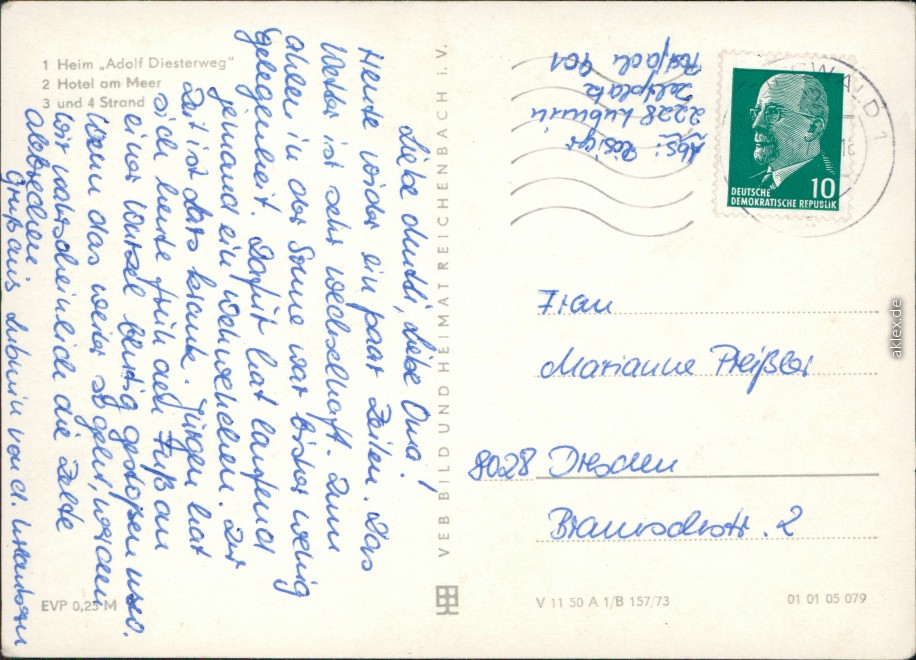 1 Heim „Adolf Diesterweg"
2 Hotel am Meer
3 und 4 Strand
Liebe Mutti, liebe Oma!
Heute wieder ein paar Zeilen. Das
Wetter ist sehr wechselhaft. Zum
aalen in der Sonne war bisher wenig
Gelegenheit. Dafür hat laufend
jemand ein Wehwehchen. Zur
Zeit ist Lars krank. Jürgen hat
sich heute früh den Fuß an
einer Wurzel blutig gestoßen usw.
Wenn das weiter so geht, werden
wir wahrscheinlich die Zelte
abbrechen.
Gruß aus Lubmin von d. Urlaubern
EVP 0,25 M
VEB BILD UND HEIMAT REICHENBACH i. V.
Abs:
2228 Lubmin
Zeltplatz
Postfach 401
WALD 1
DEUTSCHE
DEMOKRATISCHE REPUBLIK
10
Frau
Marianne Preißler
8028 Dresden
Braunsdorfstr. 2
V 11 50 A 1/B 157/73
01 01 05 079
aklex.de